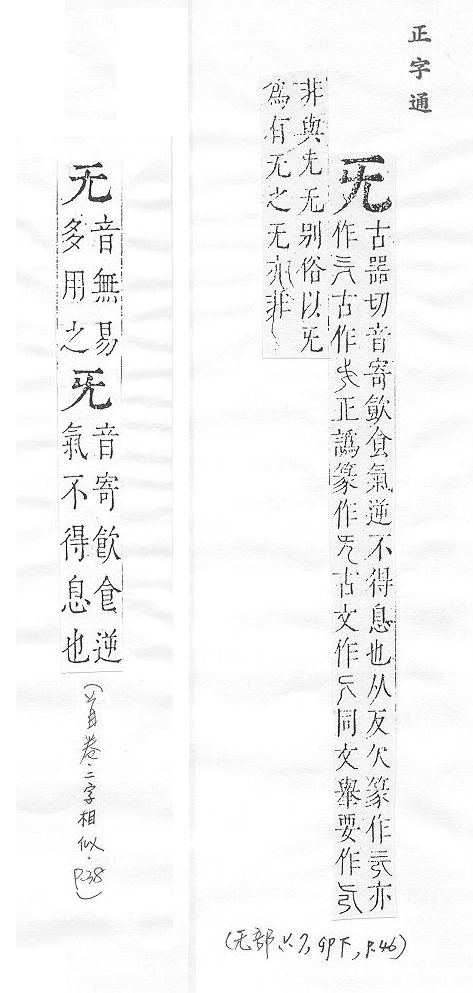 正字通
旡
古器切音寄飮食氣逆不得息也从反欠篆作亦
作古作正譌篆作古文作同文舉要作
非與无别俗以旡
為有无之无亦非
(无部, 9P下, P.46)
无
音無易
多用之
旡
音寄飮食逆
氣不得息也
(首卷.二字相似.P.38)